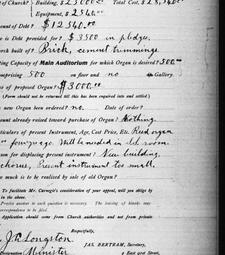 of Church? Building, $23000.00 Total Cost, $25,540.
Equipment, $2540.00
ount of Debt? $12540.00
w is Debt provided for? $3500 in pledges,
rch built of? Brick, cement trimmings
ting Capacity of Main Auditorium for which Organ is desired? 500.
mprising 500 on floor and no Gallery.
e of proposed Organ? $3000.00
(Form should not be returned till this has been enquired into and settled.)
w Organ been ordered? no. Date of order?
ount already raised toward purchase of Organ? Nothing.
rticulars of present Instrument, Age, Cost Price, Etc. Reed organ
Will be needed in
son for displacing present instrument? New building,
chorus, Present instrument too small.
much is to be realized by sale of old Organ?
To facilitate Mr. Carnegie's consideration of appeal, will you oblige by
in the above.
Precise answer to each question is necessary. The leaving of blanks may
correspondence to be filed.
Application should come from Church authorities and not from private
Respectfully,
JAS. BERTRAM, Secretary,
Longston
Designation Minister 2 East 91st Street,